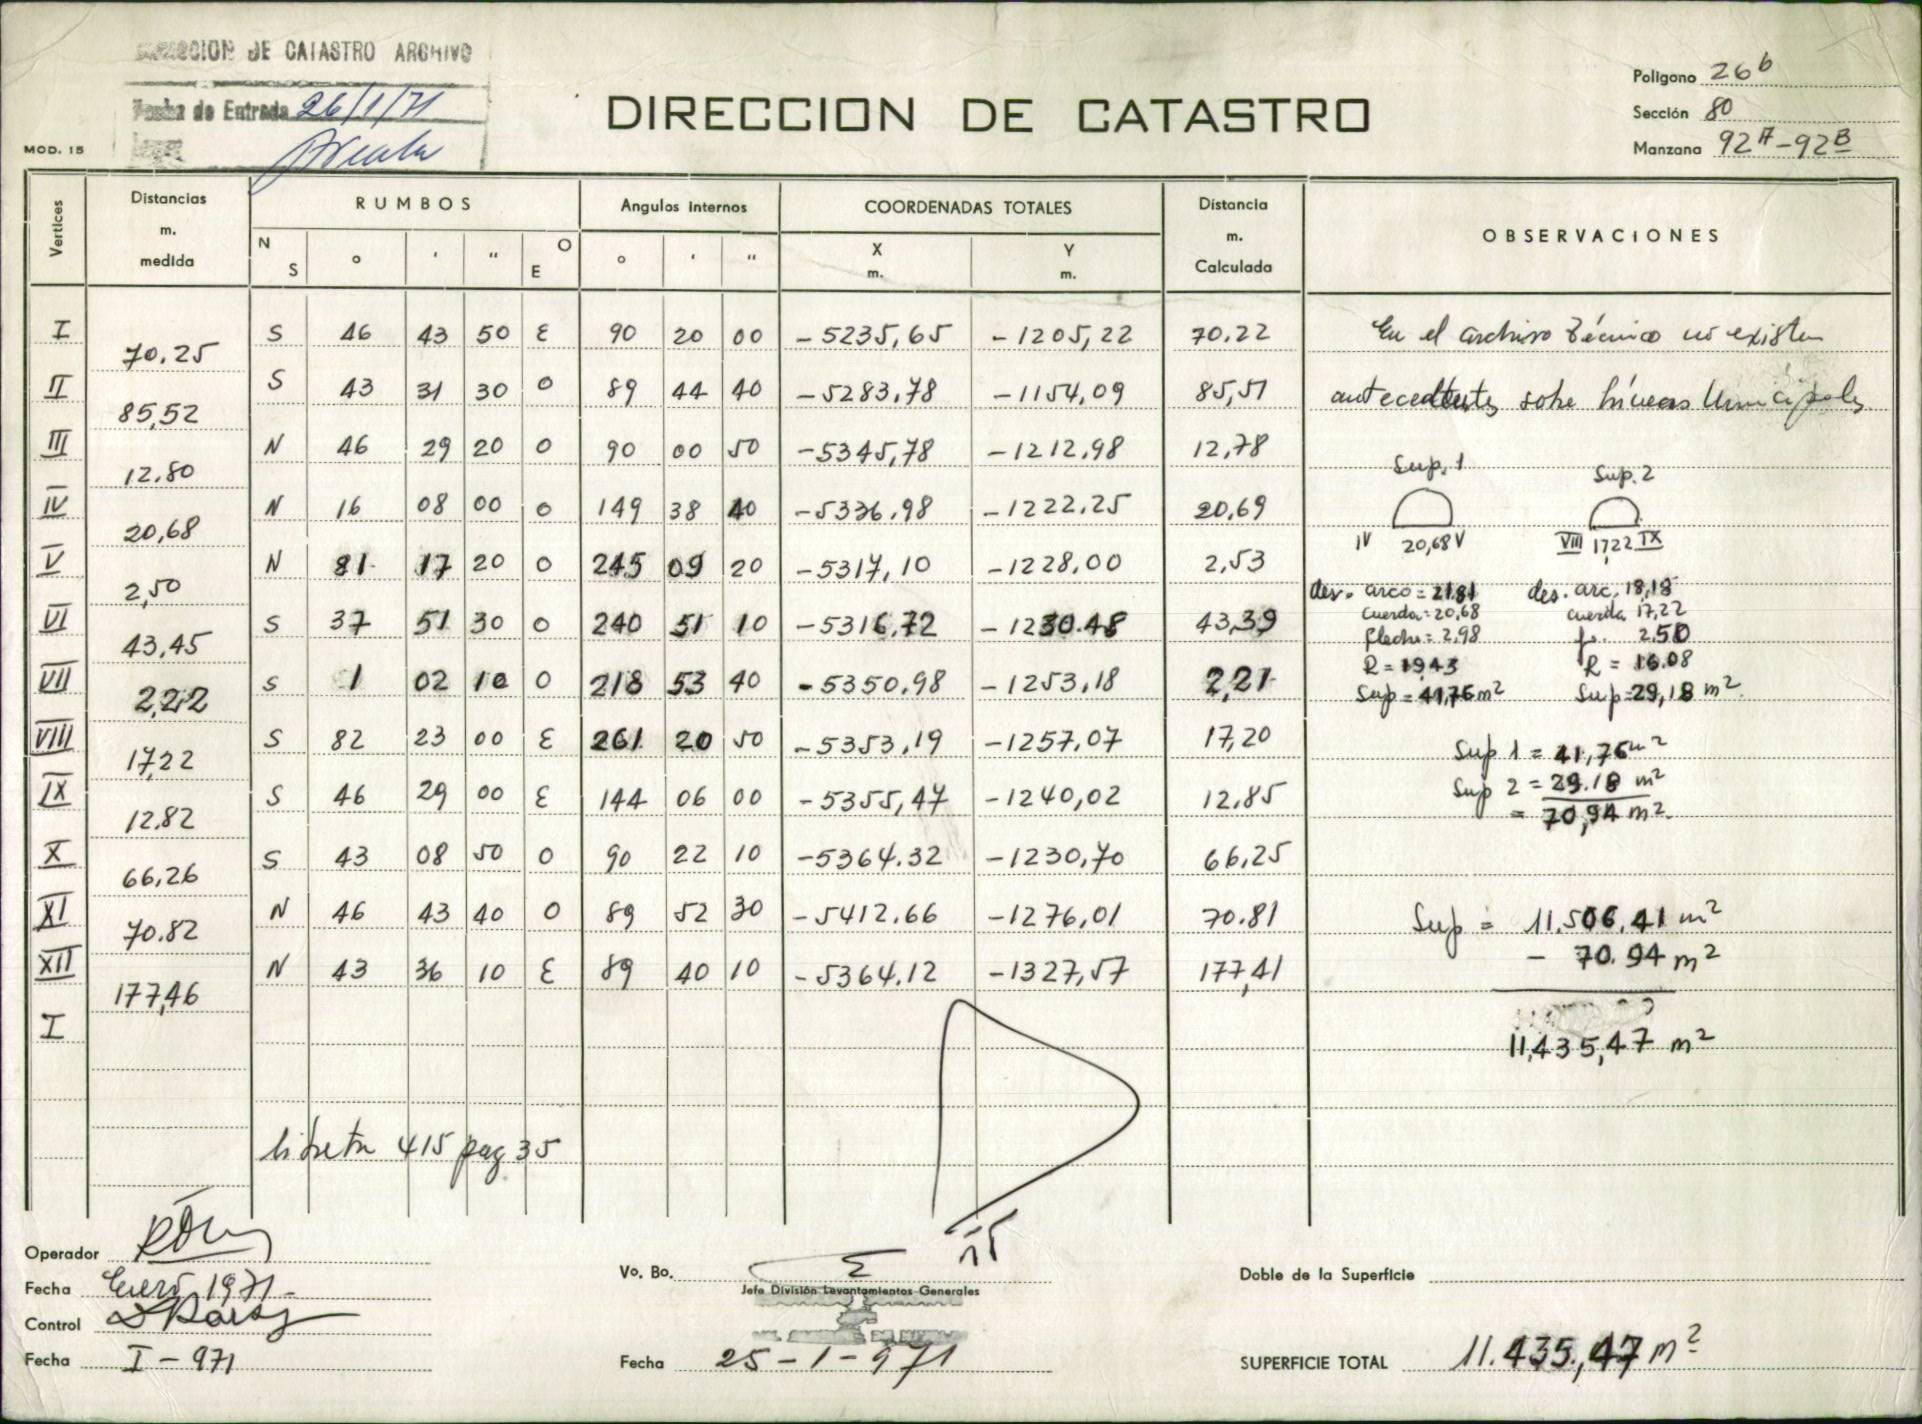 DIRECCION DE CATASTRO ARCHIVO
Fecha de Entrada 26/1/71
MOD. 15
DIRECCION DE CATASTRO
Poligono 26 b
Sección 80
Manzana 92 A - 92 B
Vertices Distancias m. medida RUMBOS Angulos internos COORDENADAS TOTALES Distancia m. Calculada OBSERVACIONES
N S ° ' " O E ° ' " X m. Y m.
I S 46 43 50 E 90 20 00 -5235,65 -1205,22 70.22 En el archivo técnico no existen
70,25
II S 43 31 30 O 89 44 40 -5283,78 -1154,09 85,51 antecedentes sobre líneas Municipales
85,52
III N 46 29 20 O 90 00 50 -5345,78 -1212,98 12,78
12,80
Sup. 1 Sup. 2
IV N 16 08 00 O 149 38 40 -5336,98 -1222,25 20,69
20,68
IV 20,68 V VIII 17,22 IX
V N 81 17 20 O 245 09 20 -5317,10 -1228,00 2,53
2,50
des. arco = 21.81 des. arc. 18,18
cuerda = 20,68 cuerda 17,22
VI S 37 51 30 O 240 51 10 -5316,72 -1230.48 43,39
43,45
flecha = 2,98 f. 2,50
R = 19,43 R = 16.08
VII S 1 02 10 O 218 53 40 -5350,98 -1253,18 2,21
2,22
Sup = 41,76 m² Sup = 29,18 m²
VIII S 82 23 00 E 261 20 50 -5353,19 -1257,07 17,20
17,22
Sup 1 = 41,76 m²
IX S 46 29 00 E 144 06 00 -5355,47 -1240,02 12,85
12,82
Sup 2 = 29.18 m²
= 70,94 m².
X S 43 08 50 O 90 22 10 -5364.32 -1230,70 66,25
66,26
XI N 46 43 40 O 89 52 30 -5412.66 -1276,01 70.81
70.82
Sup = 11.506,41 m²
XII N 43 36 10 E 89 40 10 -5364.12 -1327,57 177,41
177,46
- 70.94 m²
I
11,435,47 m²
libreta 415 pag 35
Operador
Fecha Enero 1971
Control
Fecha I - 971
Vo. Bo.
Jefe División Levantamientos Generales
Fecha 25-1-971
Doble de la Superficie
SUPERFICIE TOTAL 11.435,47 m²